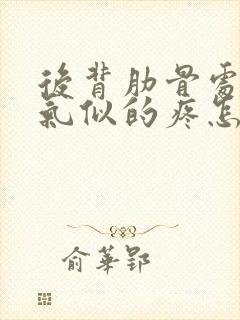 後背肋骨處
氣似的疼怎
俞華郢